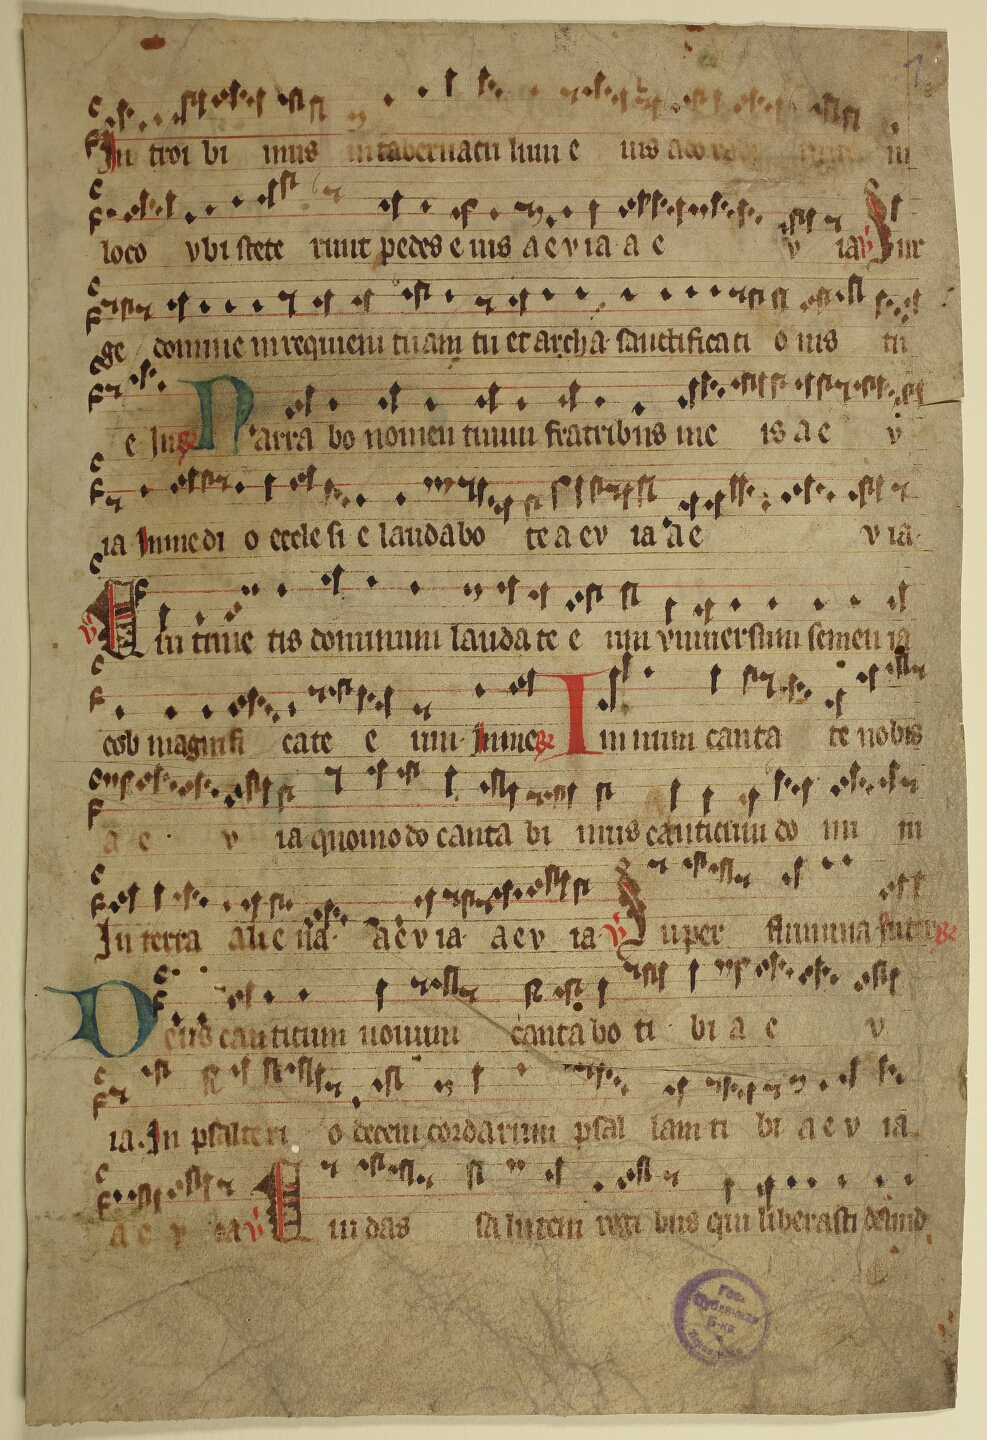 In troi bi mus in tabernacu lum e ius ado in
loco vbi stete runt pedes e ius a e v ia a e v ia ℣ Sur
ge domine in requiem tuam tu et archa sanctificati o nis tu
e In ℟ Narra bo nomen tuum fratribus me is a e v
ia In medi o eccle si e laudabo te a e v ia a e v ia
℣ Qui time tis dominum lauda te e um vniuersum semen ia
cob magnifi cate e um In me ℟ Iminum canta te nobis
a e v ia quomodo canta bi mus canticum do mi ni
In terra alie na a e v ia a e v ia ℣ Super flumina ℟
Deus canticum nouum canta bo ti bi a e v
ia In psalteri o decem cordarum psal lam ti bi a e v ia
a e v ia ℣ Qui das salutem regi bus qui liberasti